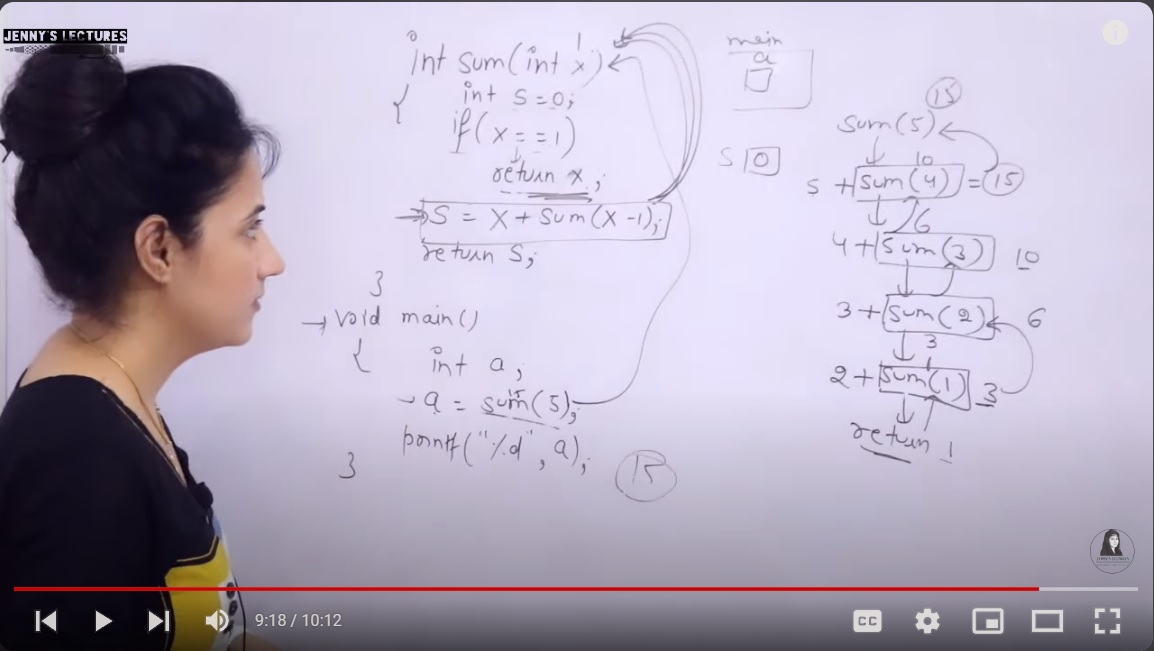 JENNY'S LECTURES
int sum(int x)
1
{ int s=0;
if(x==1)
return x;
→ s = x + sum(x-1);
return s;
}
→ void main()
{ int a;
a = sum(5);
15
printf("%d", a);
}
15
main
a
s 0
15
sum(5)
10
5 + sum(4) = 15
6
4 + sum(3) 10
3 + sum(2) 6
3
2 + sum(1) 3
1
return 1
JENNY'S LECTURES
9:18 / 10:12
CC